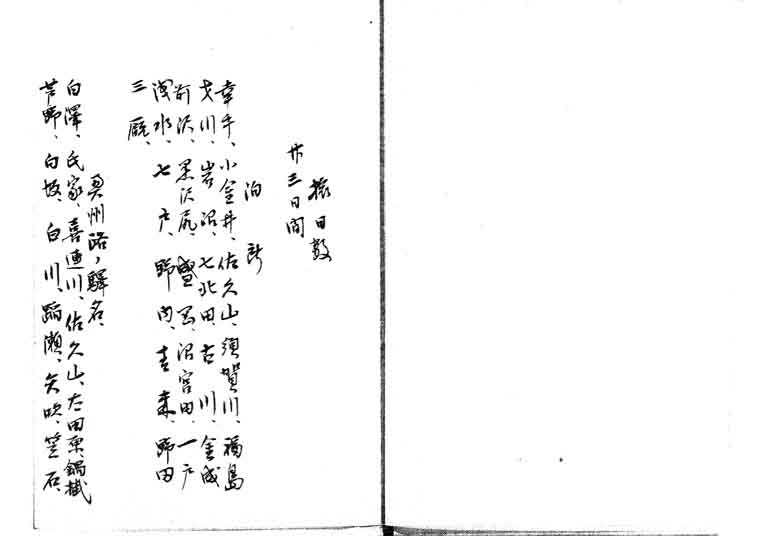 旅日数
廿三日間
泊所
幸手、小金井、佐久山、須賀川、福島
戈川、岩沼、七北田、古川、金成
前沢、黒沢尻、盛岡、沼宮内、一戸
浅水、七戸、野内、青森、野田
三厩、
奥州路ノ驛名、
白澤、氏家、喜連川、佐久山、大田原、鍋掛
芦野、白坂、白川、踏瀬、矢吹、笠石、